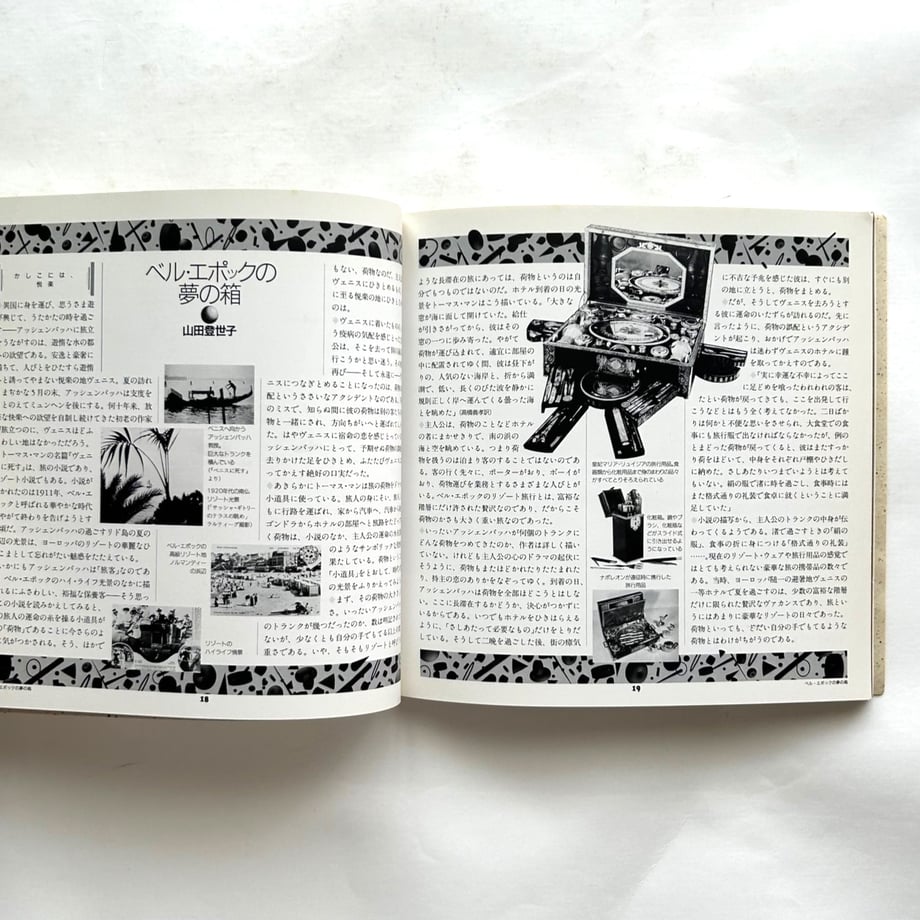 かしこには、
悦楽
ベル・エポックの
夢の箱
山田登世子
異国に身を運び、思うさま遊
び興じて、うたかたの時を過ご
す——アッシェンバッハに旅立
うながすのは、遊惰な水の都
への欲望である。安逸と豪奢に
満ちて、人びとをひたすら遊惰
へと誘ってやまない悦楽の地ヴェニス。夏の訪れ
まぢかな5月の末、アッシェンバッハは支度を
ととのえてミュンヘンを後にする。何十年来、放
快楽への欲望を自制し続けてきた初老の作家
旅立つのに、ヴェニスほどふ
わしい地はなかっただろう。
トーマス・マンの名篇『ヴェニ
に死す』は、旅の小説であり、
ゾート小説でもある。小説が
かれたのは1911年、ベル・エ
ックと呼ばれる華やかな時代
やがて終わりを告げようとす
頃だ。アッシェンバッハの過ごすリド島の夏の
辺の光景は、ヨーロッパのリゾートの華麗なひ
こまとして忘れがたい魅惑をたたえている。
いかにもアッシェンバッハは「旅客」なのであ
ベル・エポックのハイ・ライフ光景のなかに描
れるにふさわしい、裕福な保養客——そう思っ
この小説を読みかえしてみると、
の旅人の運命の糸を操る小道具が
「荷物」であることに今さらのよ
に気がつかされる。そう、はかで
もない、荷物なのだ。
ヴェニスにひきとめるも
に至る悦楽の地にひきと
のは。
ヴェニスに着いたもの
う疫病の気配を感じとっ
公は、そこを去って
行こうかと思い迷う。
再び——そして永遠に
ニスにつなぎとめることになったのは、荷物
配というささいなアクシデントなのである。
のミスで、知らぬ間に彼の荷物は別の客
物と一緒にされ、方向ちがいへと運ばれて
た。はやヴェニスに宿命の恋を感じとって
アッシェンバッハにとって、予期せぬ荷物の
去りかけた足をひきとめ、ふたたびヴェニ
ってかえす絶好の口実だった。
あきらかにトーマス・マンは旅の荷物を
小道具に使っている。旅人の身にそい、旅人
もに行路を運ばれ、家から汽車へ、汽車から
ゴンドラからホテルの部屋へと旅路をたど
く荷物は、小説のなか、主人公の運命の
のようなサンボリックな
果たしている。荷物とい
「小道具」をとおして、
の光景をふりかえって
まず、その荷物の大
さ。いったいアッシェン
のトランクが幾つだったのか、数は明記
ないが、少なくとも自分の手でもてる以上の
重さである。いや、そもそもリゾートと
ベニスへ向かう
アッシェンバッハ
教授。
巨大なトランクを
積んでいる
(『ベニスに死す』
より)
1920年代の南仏
リゾート光景
(「サッシャ・ギトリー
のテラスの眺め」
ラルティーグ撮影)
ベル・エポックの
高級リゾート地
ノルマンディー
の浜辺
リゾートの
ハイライフ情景
エポックの夢の箱
18
ような長滞在の旅にあっては、荷物というのは自
分でもつものではないのだ。ホテル到着の日の光
景をトーマス・マンはこう描いている。「大きな
窓が海に面して開けていた。給仕
が引きさがってから、彼はその
窓の一つに歩み寄った。やがて
荷物が運び込まれて、適宜に部屋の
中に配置されてゆく間、彼は昼下が
りの、人気のない海岸と、折から満
潮で、低い、長くのびた波を静かに
規則正しく岸へ運んでくる曇った海と
を眺めた」(高橋義孝訳)
主人公は、荷物のことなどホテル
の者にまかせきりで、南の浜の
海と空を眺めている。つまり荷
物を扱うのは泊まり客のすることではないのであ
る。客の行く先々に、ポーターがおり、ボーイが
おり、荷物運びを業務とするさまざまな人びとが
いる。ベル・エポックのリゾート旅行とは、富裕な
階層にだけ許された贅沢なのであり、だからこそ
荷物のかさも大きく重い旅なのであった。
いったいアッシェンバッハが何個のトランクに
どんな荷物をつめてきたのか、作者は詳しく描い
ていない。けれども主人公の心のドラマの起伏に
そうように、荷物もまたほどかれたりたたまれた
り、持主の恋のありかをなぞってゆく。到着の日、
アッシェンバッハは荷物を全部ほどこうとはしな
い。ここに長滞在するかどうか、決心がつかずに
いるからである。いつでもホテルをひきはらえる
ように、「さしあたって必要なもの」だけをとりだ
している。そうして二晩を過ごした後、街の瘴気
皇妃マリア・ルイジアの旅行用品。食
器類から化粧用品まで極めきわの品々
がすべてとりそろえられている
化粧箱。鏡やブ
ラシ、化粧瓶な
どがスライド式
に引き出せるよ
うになっている
ナポレオンが遠征時に携行した
旅行用品
に不吉な予兆を感じた彼は、すぐにも別
の地に立とうと、荷物をまとめる。
だが、そうしてヴェニスを去ろうとす
る彼に運命のいたずらが訪れるのだ。先に
言ったように、荷物の誤配というアクシデ
ントが起こり、おかげでアッシェンバッハ
は迷わずヴェニスのホテルに踵
を取ってかえすのである。
「実に幸運な不幸によってここ
に足どめを喰ったわれわれの客は、
たとい荷物が戻ってきても、ここを出発して行
こうなどとはもう全く考えてなかった。二日ばか
りは何かと不便な思いをさせられ、大食堂での食
事にも旅行服で出なければならなかったが、例の
まどった荷物が戻ってくると、彼はまたすっか
り荷をほどいて、中身をそれぞれ戸棚やひきだし
に納めた。さしあたりいつまでいようとは考えて
いない。絹の服で渚に時を過ごし、食事時には
また格式通りの礼装で食卓に就くということに満
足していた」
小説の描写から、主人公のトランクの中身が伝
わってくるようである。渚で過ごすときの「絹の
服」、食事の折に身につける「格式通りの礼装」
……。現在のリゾート・ウェアや旅行用品の感覚で
はとても考えられない豪華な旅の携帯品の数々で
ある。当時、ヨーロッパ随一の避暑地ヴェニスの
一等ホテルで夏を過ごすのは、少数の富裕な階層
だけに限られた贅沢なヴァカンスであり、旅とい
うにはあまりに豪華なリゾートの日々であった。
荷物といっても、どだい自分の手でもてるような
荷物とはわけがちがうのである。
ベル・エポックの夢の箱
19